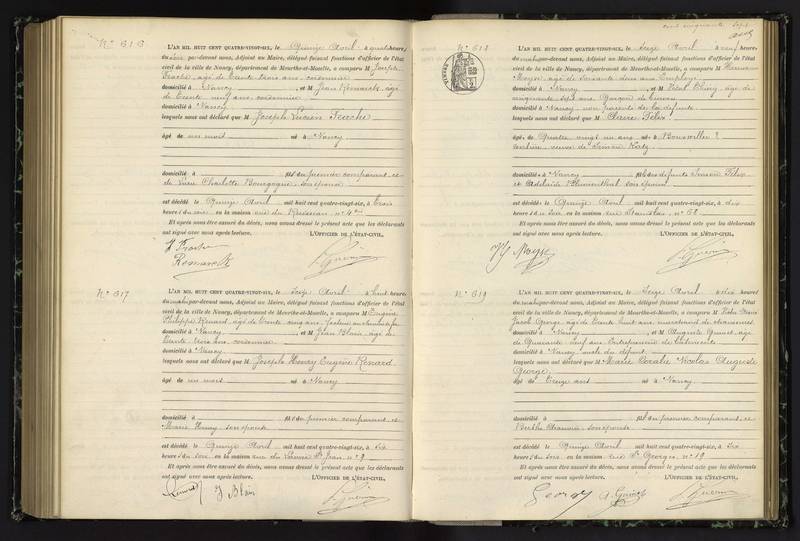 N° 616
L'AN MIL HUIT CENT QUATRE-VINGT-SIX, le Quinze Avril à quatre heures
du soir par-devant nous, Adjoint au Maire, délégué faisant fonctions d'officier de l'état
civil de la ville de Nancy, département de Meurthe-et-Moselle, a comparu M Joseph
âgé de trente trois ans, cordonnier
domicilié à Nancy, et M Jean âgé
de trente neuf ans, cordonnier
domicilié à Nancy
lesquels nous ont déclaré que M Joseph Lucien
âgé de un mois né à Nancy
domicilié à fils du premier comparant, et
de Charlotte Bourgogne, son épouse
est décédé le Quinze Avril mil huit cent quatre-vingt-six, à trois
heures du soir en la maison rue du Ruisseau, n° 4
Et après nous être assuré du décès, nous avons dressé le présent acte que les déclarants
ont signé avec nous après lecture. L'OFFICIER DE L'ÉTAT-CIVIL,
N° 617
L'AN MIL HUIT CENT QUATRE-VINGT-SIX, le Seize Avril à huit heures
du matin par-devant nous, Adjoint au Maire, délégué faisant fonctions d'officier de l'état
civil de la ville de Nancy, département de Meurthe-et-Moselle, a comparu M Eugène
Philippe Renard, âgé de trente cinq ans, facteur au chemin de fer
domicilié à Nancy, et M Jean Blain, âgé de
trente trois ans, cordonnier
domicilié à Nancy
lesquels nous ont déclaré que M Joseph Henry Eugène Renard
âgé de un mois né à Nancy
domicilié à fils du premier comparant, et
Marie Henry, son épouse
est décédé le Quinze Avril mil huit cent quatre-vingt-six, à six
heures du soir en la maison rue du St Jean n° 9
Et après nous être assuré du décès, nous avons dressé le présent acte que les déclarants
ont signé avec nous après lecture. L'OFFICIER DE L'ÉTAT-CIVIL,
J Blain
cent cinquante sept
N° 618
L'AN MIL HUIT CENT QUATRE-VINGT-SIX, le Seize Avril à neuf heures
du matin par-devant nous, Adjoint au Maire, délégué faisant fonctions d'officier de l'état
civil de la ville de Nancy, département de Meurthe-et-Moselle, a comparu M
âgé de soixante deux ans, Employé
domicilié à Nancy, et M Vital Thiéry, âgé de
cinquante sept ans, Garçon de bureau
domicilié à Nancy, non parents de la défunte
lesquels nous ont déclaré que M Claire Félix
âgée de Quatre vingt un ans née à Bouxwiller
veuve de Simon Katz
domiciliée à Nancy fille des défunts Simon Félix
et Adélaïde Blumenthal, son épouse
est décédée le Quinze Avril mil huit cent quatre-vingt-six, à dix
heures du soir en la maison rue Stanislas, n° 68
Et après nous être assuré du décès, nous avons dressé le présent acte que les déclarants
ont signé avec nous après lecture. L'OFFICIER DE L'ÉTAT-CIVIL,
N° 619
L'AN MIL HUIT CENT QUATRE-VINGT-SIX, le Seize Avril à dix heures
du matin par-devant nous, Adjoint au Maire, délégué faisant fonctions d'officier de l'état
civil de la ville de Nancy, département de Meurthe-et-Moselle, a comparu M
Jacob George, âgé de trente huit ans, marchand de chaussures
domicilié à Nancy, et M Auguste âgé
de Quarante neuf ans, Entrepreneur de bâtiments
domicilié à Nancy, oncle du défunt
lesquels nous ont déclaré que M Marie Nicolas Auguste
George
âgé de treize ans né à Nancy
domicilié à fils du premier comparant, et
Berthe son épouse
est décédé le Quinze Avril mil huit cent quatre-vingt-six, à six
heures du soir en la maison rue St Georges, n° 19
Et après nous être assuré du décès, nous avons dressé le présent acte que les déclarants
ont signé avec nous après lecture. L'OFFICIER DE L'ÉTAT-CIVIL,
George